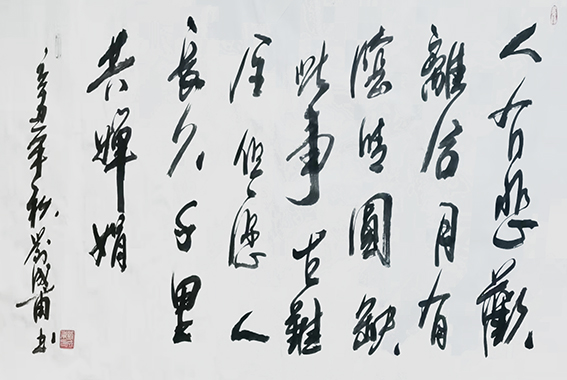 人有悲歡
離合月有
陰晴圓缺
此事古難
全但願人
長久千里
共嬋娟
辛丑年秋劉成甫书